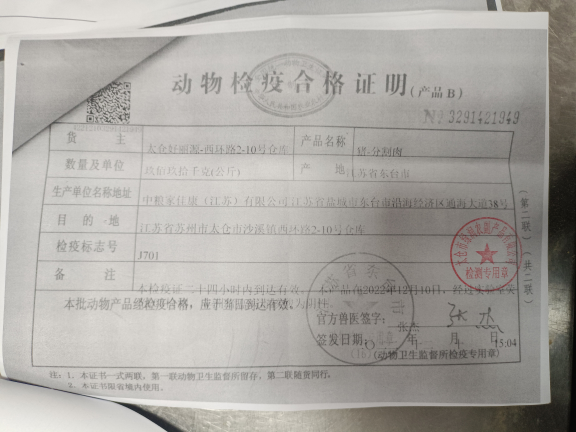 动物检疫合格证明(产品B)
№ 3291421949
货主 太仓好丽源-西环路2-10号仓库 产品名称 猪-分割肉
数量及单位 玖佰玖拾千克(公斤) 产地 江苏省东台市
生产单位名称地址 中粮家佳康(江苏)有限公司江苏省盐城市东台市沿海经济区通海大道38号
目的地 江苏省苏州市太仓市沙溪镇西环路2-10号仓库
检疫标志号 J701
备注 本检疫证二十四小时内到达有效。本产品在2022年12月10日,经过
本批动物产品经检疫合格,应于当日到达有效。
官方兽医签字: 张杰
签发日期: 年 月 15:04
(动物卫生监督所检疫专用章)
检测专用章
(第二联)
(共二联)
注:1、本证书一式两联,第一联动物卫生监督所留存,第二联随货同行。
2、本证书限省境内使用。